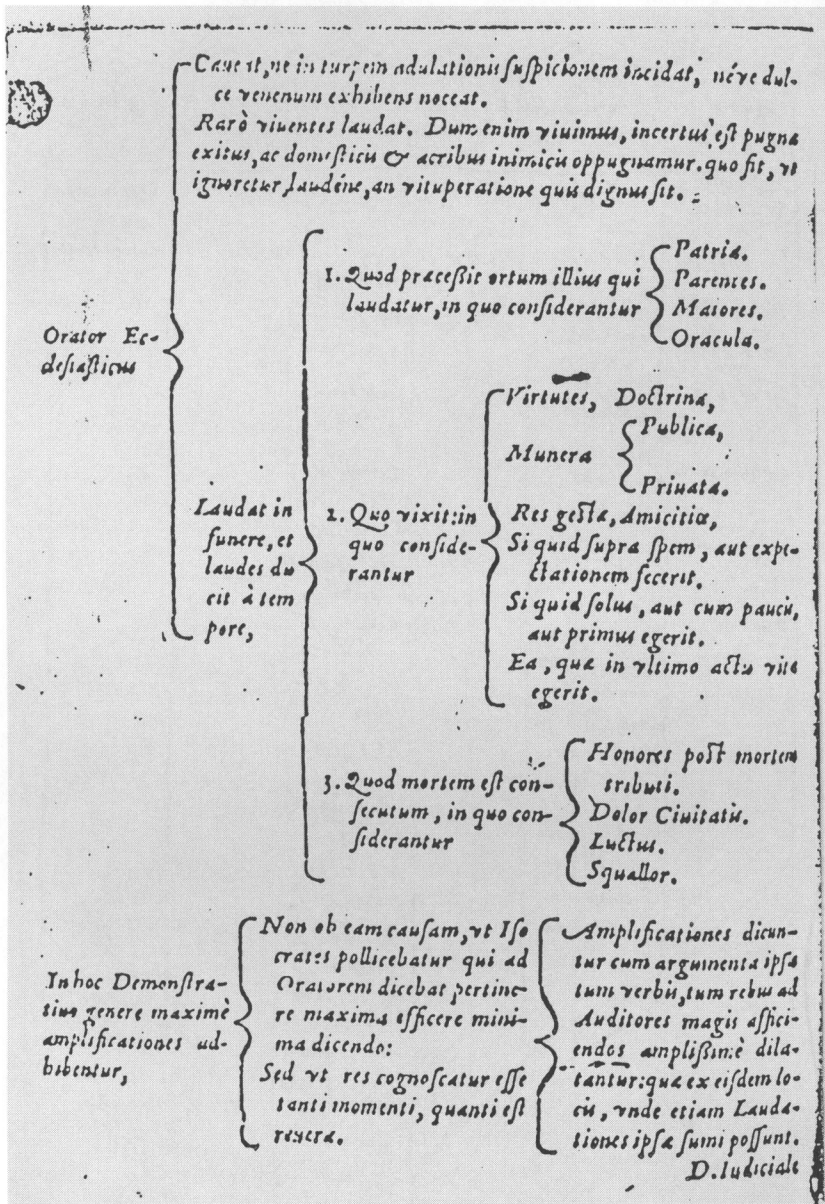 Caueat, ne in turpem adulationis suspicionem incidat, néve dul-
ce venenum exhibens noceat.
Rarò viuentes laudat. Dum enim viuimus, incertus est pugnæ
exitus, ac domesticis & acribus inimicis oppugnamur. quo fit, vt
ignoretur, laudéne, an vituperatione quis dignus sit.
Orator Ec-
clesiasticus
Laudat in
funere, et
laudes du
cit à tem
pore,
1. Quod præcessit ortum illius qui
laudatur, in quo considerantur
Patria.
Parentes.
Maiores.
Oracula.
2. Quo vixit: in
quo conside-
rantur
Virtutes, Doctrina,
Munera
Publica,
Priuata.
Res gesta, Amicitiæ,
Si quid supra spem, aut expe-
ctationem fecerit.
Si quid solus, aut cum paucis,
aut primus egerit.
Ea, quæ in vltimo actu vitæ
egerit.
3. Quod mortem est con-
secutum, in quo con-
siderantur
Honores post mortem
tributi.
Dolor Ciuitatis.
Luctus.
Squallor.
In hoc Demonstra-
tiuo genere maximè
amplificationes ad-
hibentur,
Non ob eam causam, vt Iso
crates pollicebatur qui ad
Oratorem dicebat pertine-
re maxima efficere mini-
ma dicendo:
Sed vt res cognoscatur esse
tanti momenti, quanti est
reuera.
Amplificationes dicun-
tur cum argumenta ipsa
tum verbis, tum rebus ad
Auditores magis affici-
endos amplissimè dila-
tantur: quæ ex eisdem lo-
cis, vnde etiam Lauda-
tiones ipsæ sumi possunt.
D. Iudiciale